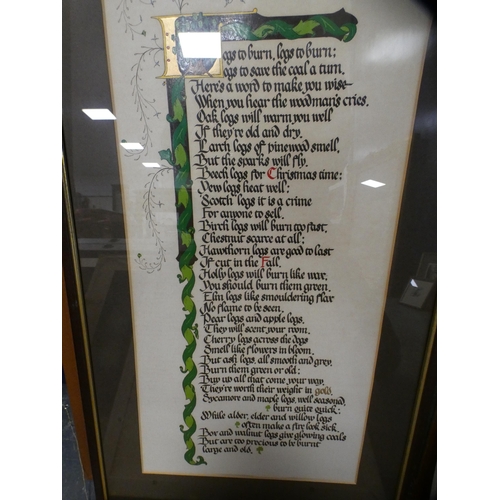 Logs to burn, logs to burn:
Logs to save the coal a turn.
Here's a word to make you wise
When you hear the woodman's cries.
Oak logs will warm you well
If they're old and dry.
Larch logs of pinewood smell,
But the sparks will fly.
Beech logs for Christmas time:
Yew logs heat well:
Scotch logs it is a crime
For anyone to sell.
Birch logs will burn too fast,
Chestnut scarce at all:
Hawthorn logs are good to last
If cut in the Fall.
Holly logs will burn like wax,
You should burn them green.
Elm logs like smouldering flax
No flame to be seen.
Pear logs and apple logs,
They will scent your room.
Cherry logs across the dogs
Smell like flowers in bloom.
But ash logs, all smooth and grey,
Burn them green or old:
Buy up all that come your way,
They're worth their weight in gold.
Sycamore and maple logs, well seasoned,
burn quite quick:
While alder, elder and willow logs
often make a fire look sick.
Box and walnut logs give glowing coals
But are too precious to be burnt
large and old.